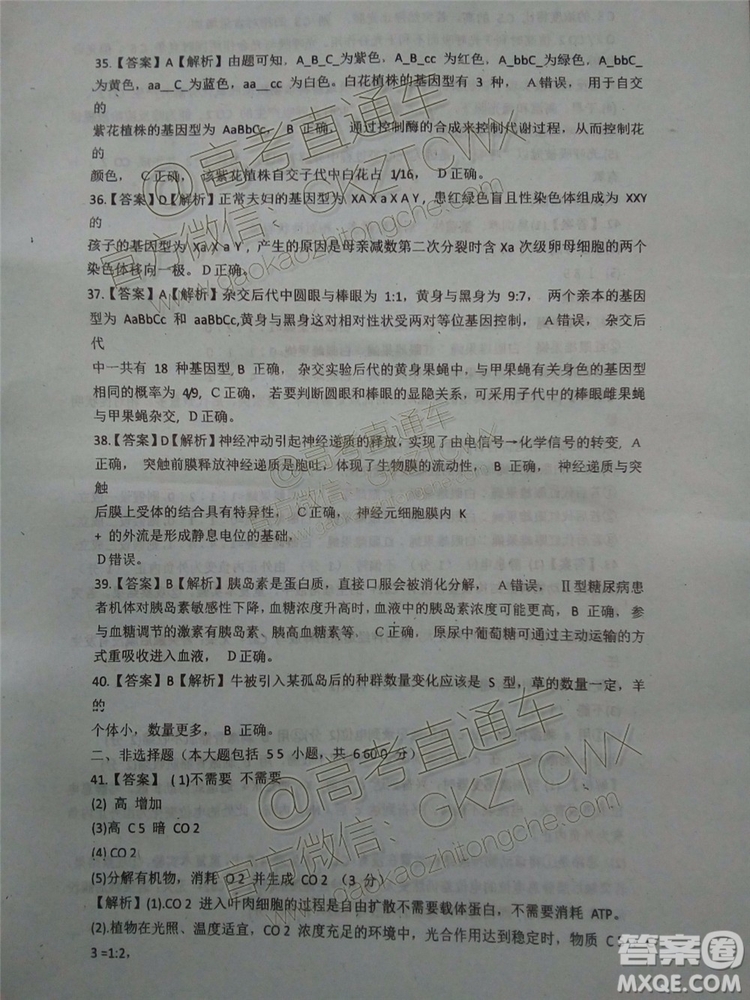 35.【答案】A【解析】由题可知，A_B_C_为紫色，A_B_cc 为红色，A_bbC_为绿色，A_bbC_
为黄色，aa__C_为蓝色，aa__cc 为白色。白花植株的基因型有 3 种， A错误，用于自交
的
紫花植株的基因型为 AaBbCc， B 正确， 通过控制酶的合成来控制代谢过程，从而控制花
的
颜色， C正确， 该紫花植株自交子代中白花占 1/16， D正确。
36.【答案】D【解析】正常夫妇的基因型为 XA X a X A Y，患红绿色盲且性染色体组成为 XXY
的
孩子的基因型为 Xa X a Y，产生的原因是母亲减数第二次分裂时含 Xa 次级卵母细胞的两个
染色体移向一极。D正确。
37.【答案】A【解析】杂交后代中圆眼与棒眼为 1:1，黄身与黑身为 9:7， 两个亲本的基因
型为 AaBbCc 和 aaBbCc,黄身与黑身这对相对性状受两对等位基因控制， A错误， 杂交后
代
中一共有 18 种基因型, B 正确， 杂交实验后代的黄身果蝇中,与甲果蝇有关身色的基因型
相同的概率为 4/9, C正确， 若要判断圆眼和棒眼的显隐关系，可采用子代中的棒眼雌果蝇
与甲果蝇杂交, D正确。
38.【答案】D【解析】神经冲动引起神经递质的释放，实现了由电信号→化学信号的转变, A
正确， 突触前膜释放神经递质是胞吐，体现了生物膜的流动性， B 正确， 神经递质与突
触
后膜上受体的结合具有特异性， C正确， 神经元细胞膜内 K
+ 的外流是形成静息电位的基础，
D错误。
39.【答案】D【解析】胰岛素是蛋白质，直接口服会被消化分解， A 错误， Ⅱ型糖尿病患
者机体对胰岛素敏感性下降，血糖浓度升高时，血液中的胰岛素浓度可能更高，B 正确， 参
与血糖调节的激素有胰岛素、胰高血糖素等， C正确， 原尿中葡萄糖可通过主动运输的方
式重吸收进入血液， D正确。
40.【答案】B【解析】牛被引入某孤岛后的种群数量变化应该是 S 型，草的数量一定，羊
的
个体小，数量更多， B 正确。
二、非选择题（本大题包括 5 5 小题，共 6 6 0 0 分）
41.【答案】 (1)不需要 不需要
(2) 高 增加
(3)高 C 5 暗 CO 2
(4) CO 2
(5)分解有机物，消耗 O 2 并生成 CO 2 （3 分）
【解析】(1).CO 2 进入叶肉细胞的过程是自由扩散不需要载体蛋白，不需要消耗 ATP。
(2).植物在光照、温度适宜，CO 2 浓度充足的环境中，光合作用达到稳定时，物质 C
3 =1:2,
@高考直通车
官方微信：GKZTCWX
www.gaokaozhitongche.com
@高考直通车
官方微信：GKZTCWX
www.gaokaozhitongche.com
答案圈
MXQE.COM